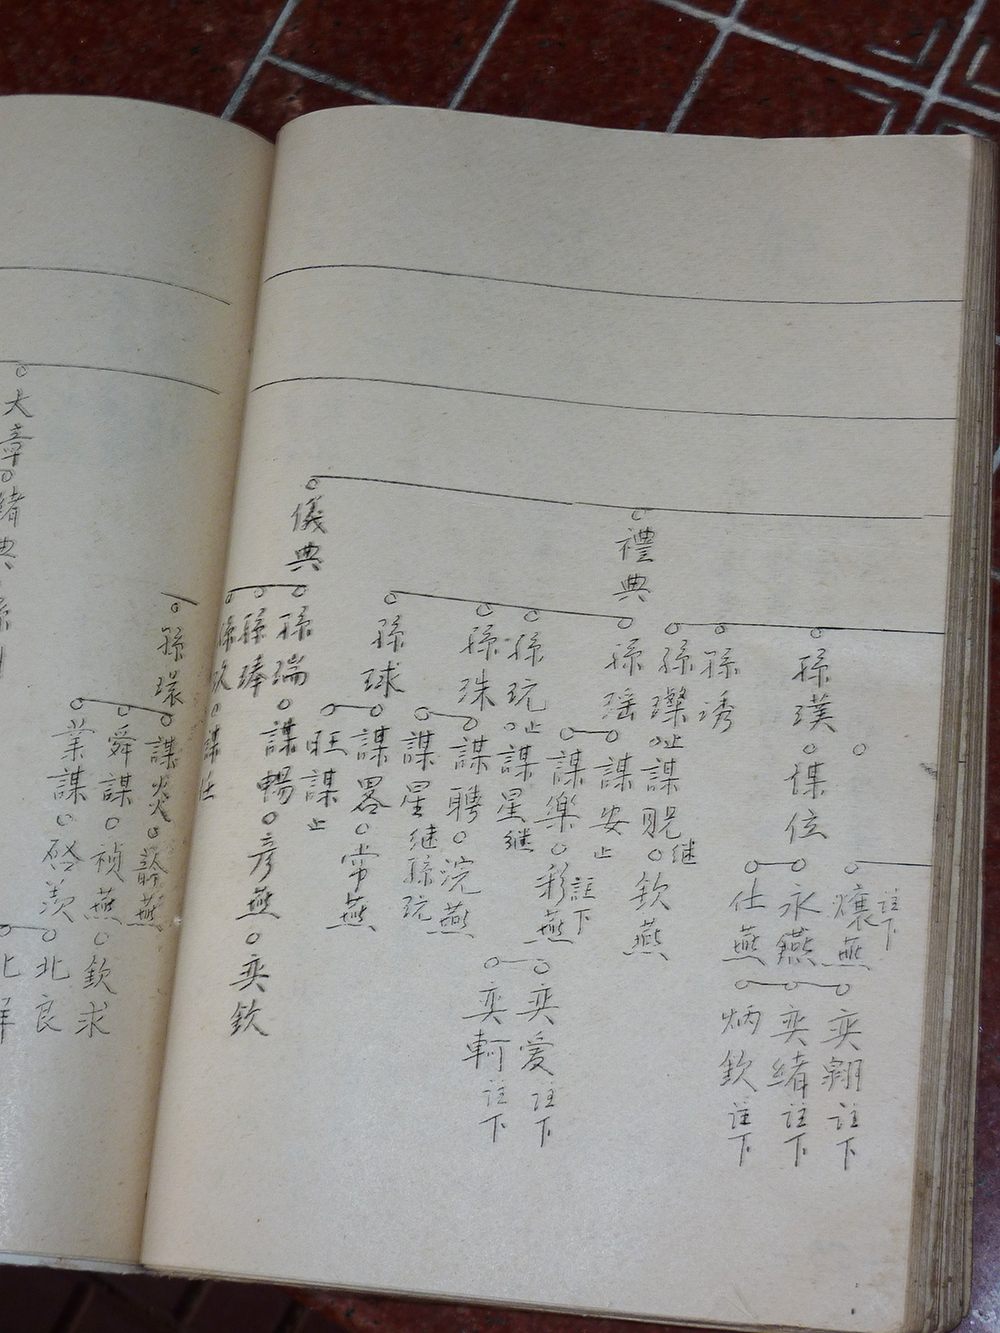 禮典
孫璞
謀位
燻燕 註下
永燕
仕燕
奕翱 註下
奕緒 註下
炳欽 註下
孫琇
孫璨 止
謀貺 继
欽燕
孫瑶
謀安 止
謀樂
彩燕 註下
奕爱 註下
奕軻 註下
孫玩 止
謀星 继
孫珠
謀聘
浣燕
謀星 继孫玩
儀典
孫球
謀畧
常燕
旺謀 止
孫瑞
謀暢
彦燕
奕欽
孫琫
孫玖
謀仕
孫環
謀炎
齡燕
舜謀
禎燕
欽求
業謀
啓羡
北良
大章
緒典